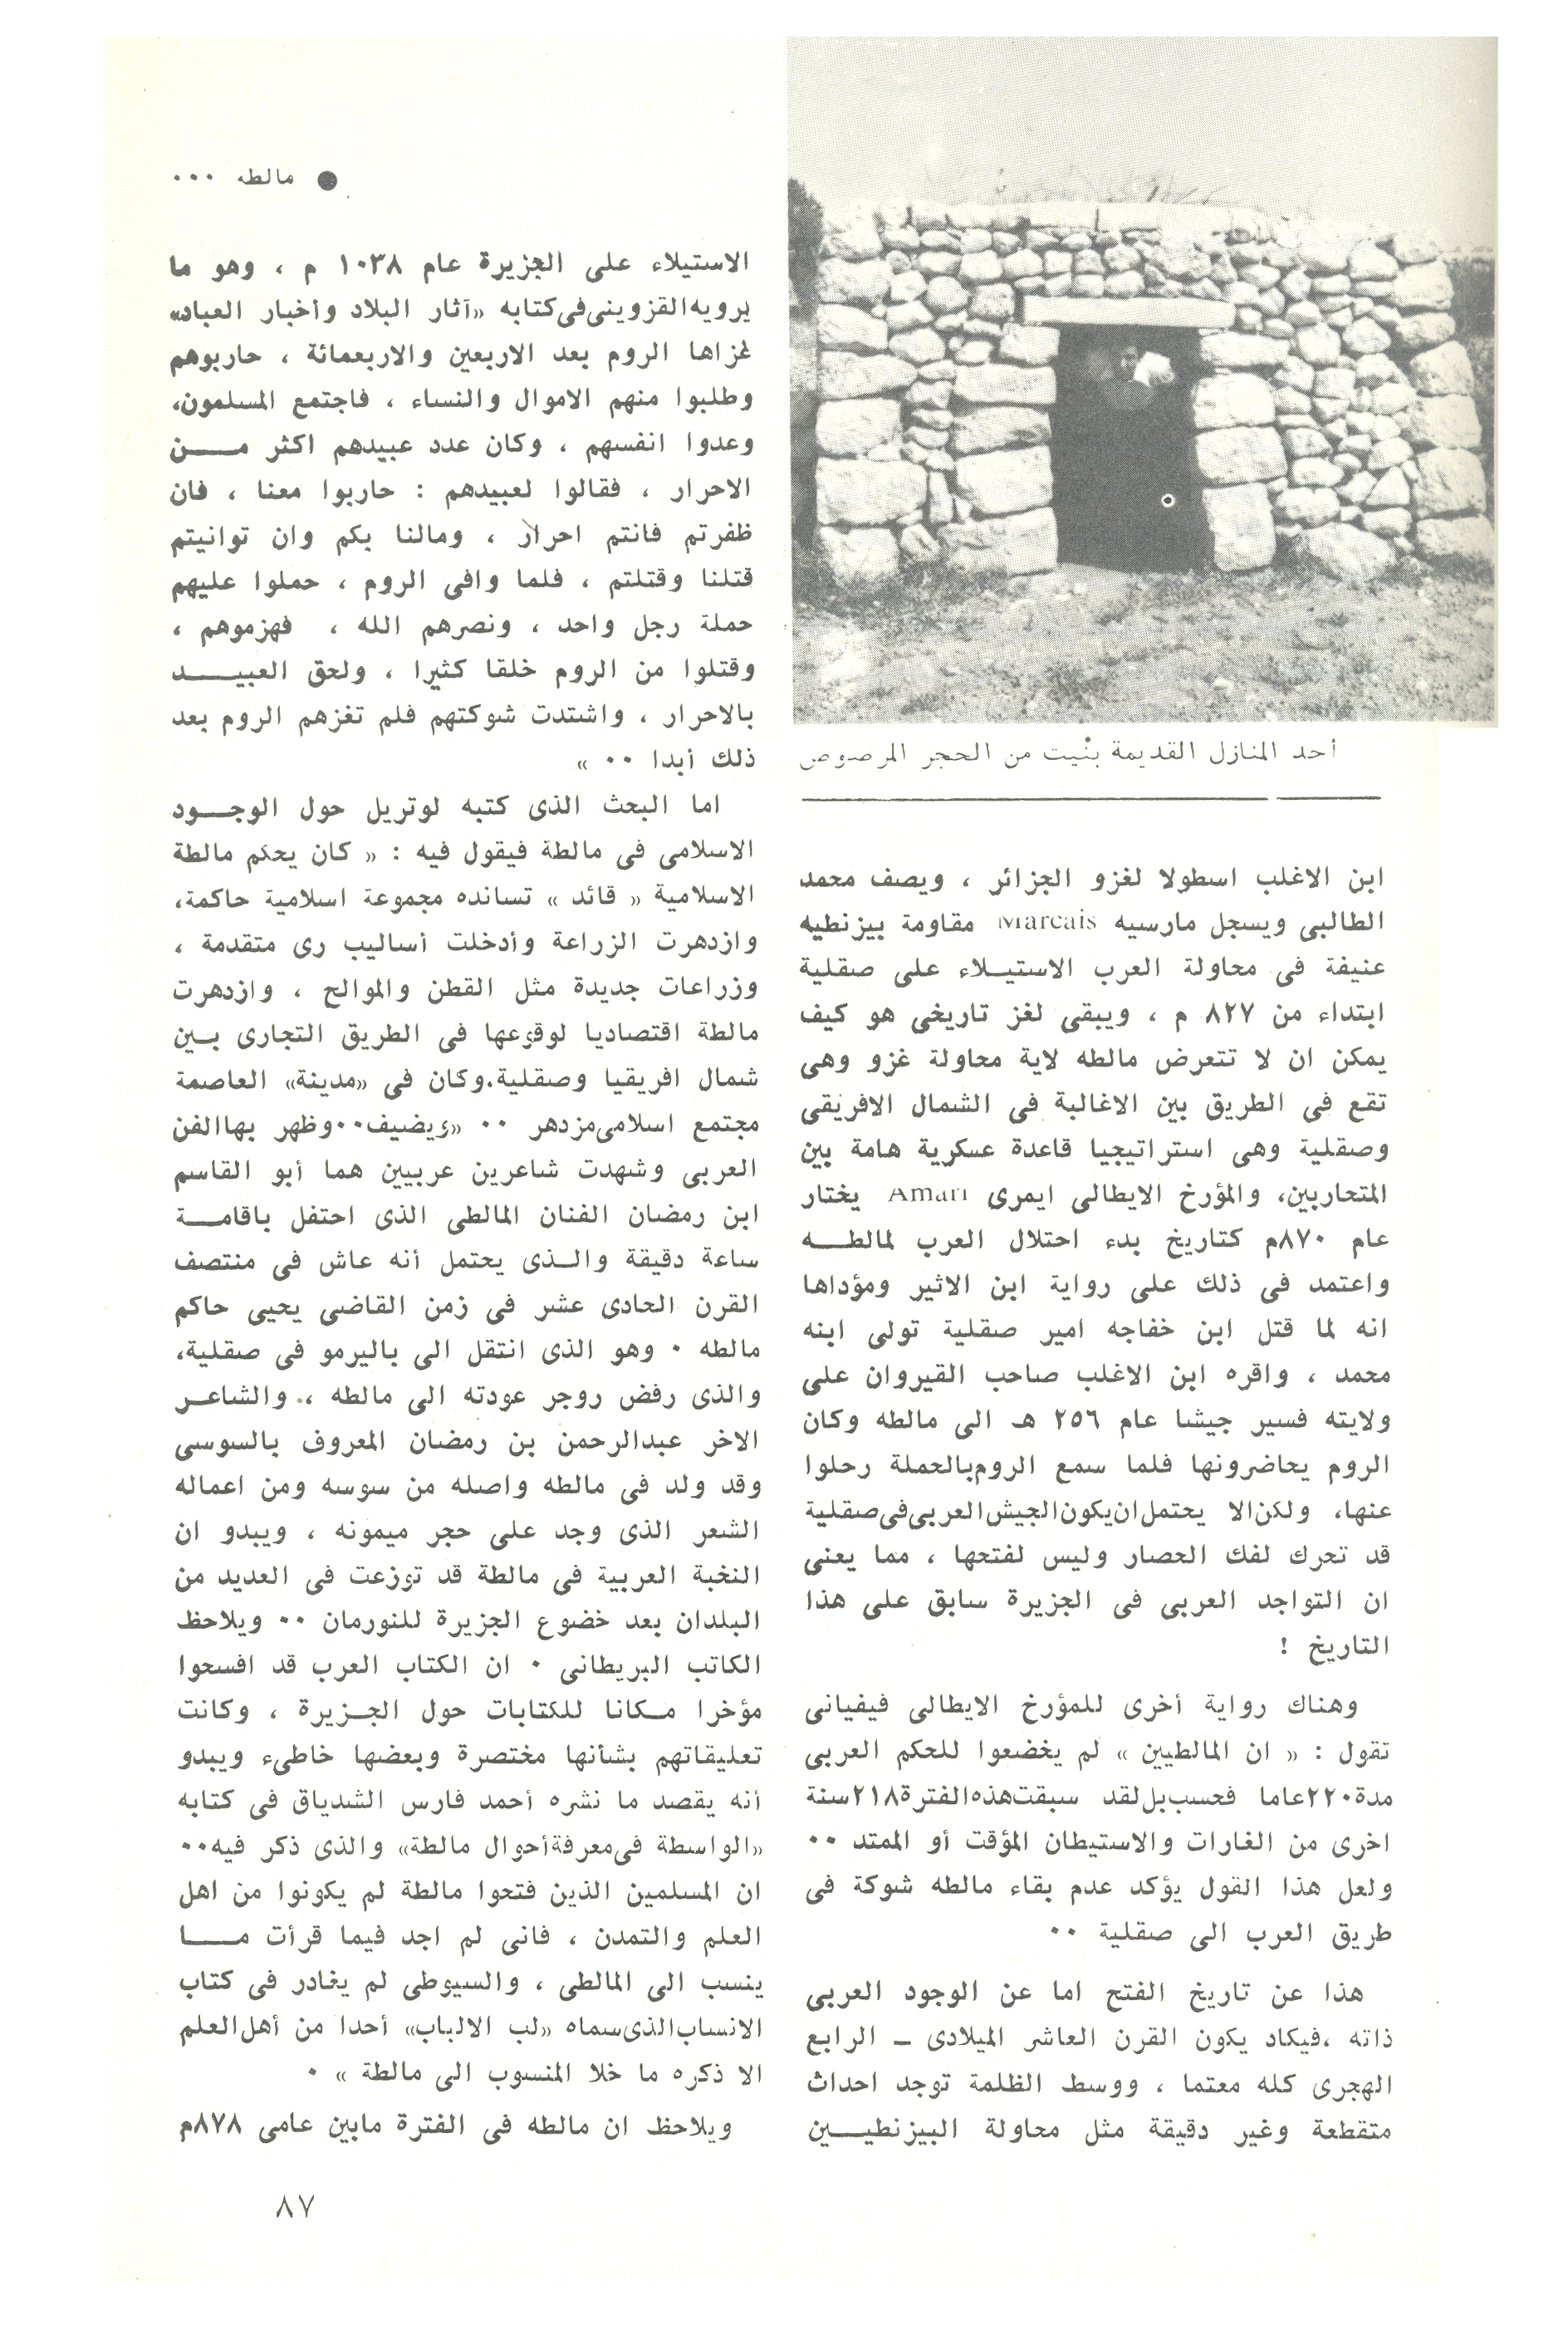 ● مالطه ٠٠٠
أحد المنازل القديمة بنيت من الحجر المرصوص
ابن الاغلب اسطولا لغزو الجزائر ، ويصف محمد
الطالبى ويسجل مارسيه Marcais مقاومة بيزنطيه
عنيفة فى محاولة العرب الاستيلاء على صقلية
ابتداء من ٨٢٧ م ، ويبقى لغز تاريخى هو كيف
يمكن ان لا تتعرض مالطه لاية محاولة غزو وهى
تقع فى الطريق بين الاغالبة فى الشمال الافريقى
وصقلية وهى استراتيجيا قاعدة عسكرية هامة بين
المتحاربين، والمؤرخ الايطالى ايمرى Amari يختار
عام ٨٧٠م كتاريخ بدء احتلال العرب لمالطه
واعتمد فى ذلك على رواية ابن الاثير ومؤداها
انه لما قتل ابن خفاجه امير صقلية تولى ابنه
محمد ، واقره ابن الاغلب صاحب القيروان على
ولايته فسير جيشا عام ٢٥٦ هـ الى مالطه وكان
الروم يحاضرونها فلما سمع الروم بالحملة رحلوا
عنها، ولكن الا يحتمل ان يكون الجيش العربى فى صقلية
قد تحرك لفك الحصار وليس لفتحها ، مما يعنى
ان التواجد العربى فى الجزيرة سابق على هذا
التاريخ !
وهناك رواية أخرى للمؤرخ الايطالى فيفيانى
تقول : « ان المالطيين » لم يخضعوا للحكم العربى
مدة ٢٢٠ عاما فحسب بل لقد سبقت هذه الفترة ٢١٨ سنة
اخرى من الغارات والاستيطان المؤقت أو الممتد ٠٠
ولعل هذا القول يؤكد عدم بقاء مالطه شوكة فى
طريق العرب الى صقلية ٠٠
هذا عن تاريخ الفتح اما عن الوجود العربى
ذاته ،فيكاد يكون القرن العاشر الميلادى – الرابع
الهجرى كله معتما ، ووسط الظلمة توجد احداث
متقطعة وغير دقيقة مثل محاولة البيزنطيين
الاستيلاء على الجزيرة عام ١٠٣٨ م ، وهو ما
يرويه القزوينى فى كتابه «آثار البلاد وأخبار العباد»
غزاها الروم بعد الاربعين والاربعمائة ، حاربوهم
وطلبوا منهم الاموال والنساء ، فاجتمع المسلمون،
وعدوا انفسهم ، وكان عدد عبيدهم اكثر من
الاحرار ، فقالوا لعبيدهم : حاربوا معنا ، فان
ظفرتم فانتم احرار ، ومالنا بكم وان توانيتم
قتلنا وقتلتم ، فلما وافى الروم ، حملوا عليهم
حملة رجل واحد ، ونصرهم الله ، فهزموهم ،
وقتلوا من الروم خلقا كثيرا ، ولحق العبيد
بالاحرار ، واشتدت شوكتهم فلم تغزهم الروم بعد
ذلك أبدا ٠٠ »
اما البحث الذى كتبه لوتريل حول الوجود
الاسلامى فى مالطة فيقول فيه : « كان يحكم مالطة
الاسلامية « قائد » تسانده مجموعة اسلامية حاكمة،
وازدهرت الزراعة وأدخلت أساليب رى متقدمة ،
وزراعات جديدة مثل القطن والموالح ، وازدهرت
مالطة اقتصاديا لوقوعها فى الطريق التجارى بين
شمال افريقيا وصقلية.وكان فى «مدينة» العاصمة
مجتمع اسلامى مزدهر ٠٠ «ويضيف٠٠وظهر بها الفن
العربى وشهدت شاعرين عربيين هما أبو القاسم
ابن رمضان الفنان المالطى الذى احتفل باقامة
ساعة دقيقة والذى يحتمل أنه عاش فى منتصف
القرن الحادى عشر فى زمن القاضى يحيى حاكم
مالطه ٠ وهو الذى انتقل الى باليرمو فى صقلية،
والذى رفض روجر عودته الى مالطه ، والشاعر
الاخر عبدالرحمن بن رمضان المعروف بالسوسى
وقد ولد فى مالطه واصله من سوسه ومن اعماله
الشعر الذى وجد على حجر ميمونه ، ويبدو ان
النخبة العربية فى مالطة قد توزعت فى العديد من
البلدان بعد خضوع الجزيرة للنورمان ٠٠ ويلاحظ
الكاتب البريطانى ٠ ان الكتاب العرب قد افسحوا
مؤخرا مكانا للكتابات حول الجزيرة ، وكانت
تعليقاتهم بشأنها مختصرة وبعضها خاطىء ويبدو
أنه يقصد ما نشره أحمد فارس الشدياق فى كتابه
«الواسطة فى معرفة أحوال مالطة» والذى ذكر فيه٠٠
ان المسلمين الذين فتحوا مالطة لم يكونوا من اهل
العلم والتمدن ، فانى لم اجد فيما قرأت ما
ينسب الى المالطى ، والسيوطى لم يغادر فى كتاب
الانساب الذى سماه «لب الالباب» أحدا من أهل العلم
الا ذكره ما خلا المنسوب الى مالطة » ٠
ويلاحظ ان مالطه فى الفترة مابين عامى ٨٧٨م
٨٧